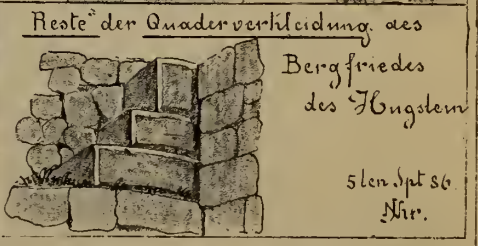 Reste der Quaderverkleidung des
Bergfriedes
des Hugstein
5ten Spt 86.